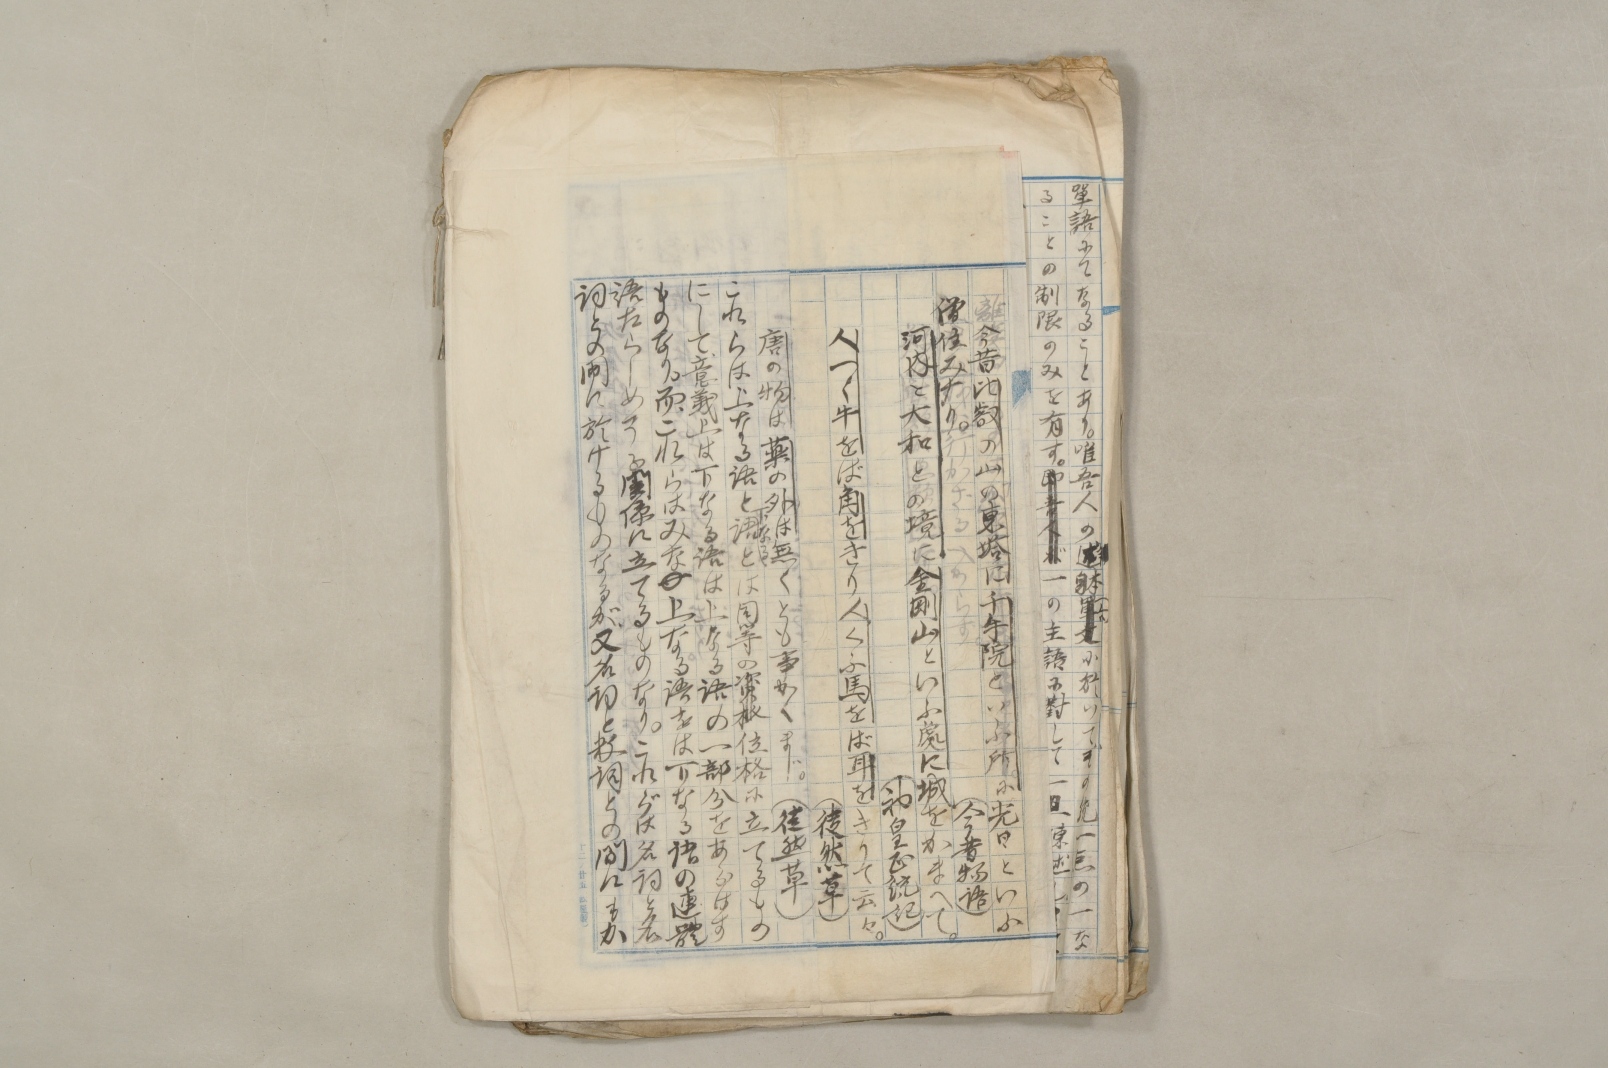 單語にてなることあり。唯吾人の
に於いてその完一点の一な
ることの制限のみを有す。
一の主語に對して一旦陳述し
今昔比叡の山の東塔に千手院といふ所に光日といふ
僧住みたり。（今昔物語）
河内と大和との境に金剛山といふ處に城をかまへて。
（神皇正統記）
人つく牛をば角をきり人くふ馬をば耳をきりて云々。
（徒然草）
唐の物は藥の外は無くとも事かくまじ。（徒然草）
これらは上なる語と下なる語とは同等の資格位格に立てるもの
にして意義上は下なる語は上なる語の一部分をあらはす
ものなり。而、これらはみな上なる語をば下なる語の連體
語たらしめうる關係に立てるものなり。これがは名詞と名
詞との間に於けるものなるが又名詞と數詞との間にもか